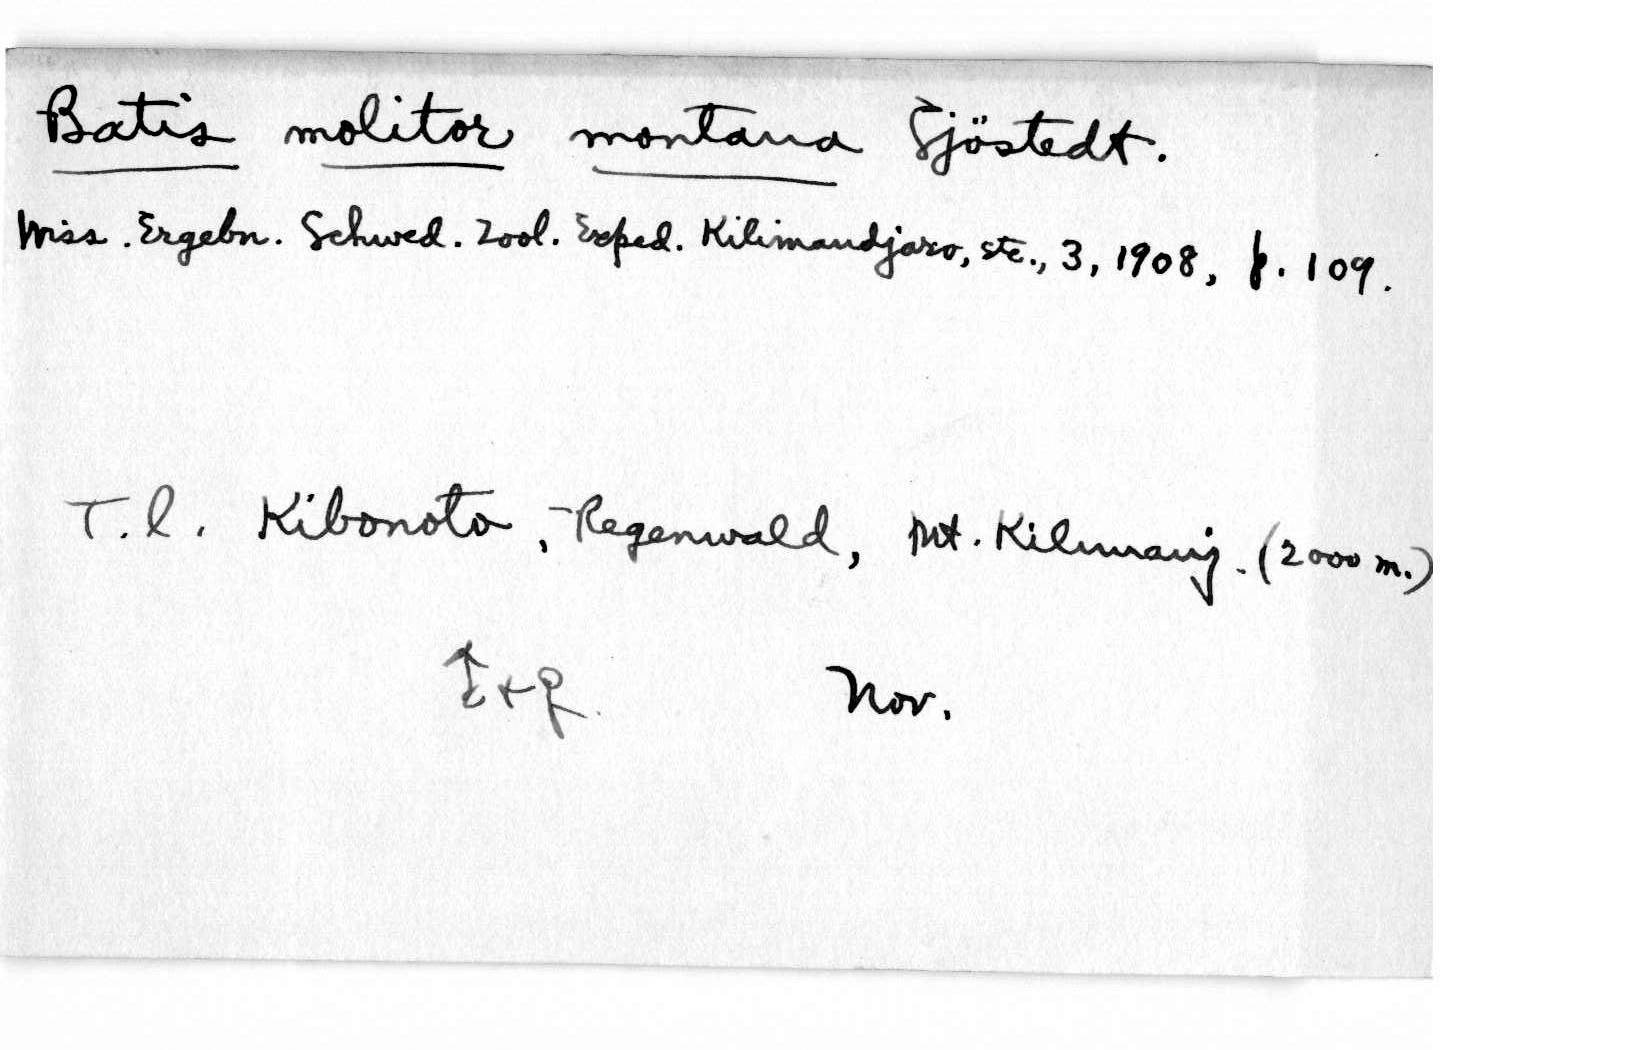 Batis molitor montana Sjöstedt.
Wiss. Ergebn. Schwed. Zool. Exped. Kilimandjaro, etc., 3, 1908, p. 109.
T.l. Kibonoto, -Regenwald, Mt. Kilimanj. (2000 m.)
♂ + ♀. Nov.